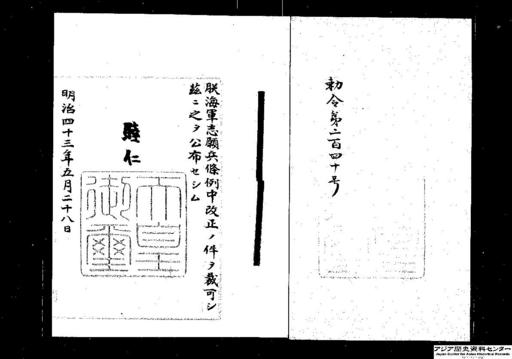 勅令第二百四十号
朕海軍志願兵條例中改正ノ件ヲ裁可シ
茲ニ之ヲ公布セシム
睦仁
天皇御璽
明治四十三年五月二十八日
アジア歴史資料センター
Japan Center for Asian Historical Records